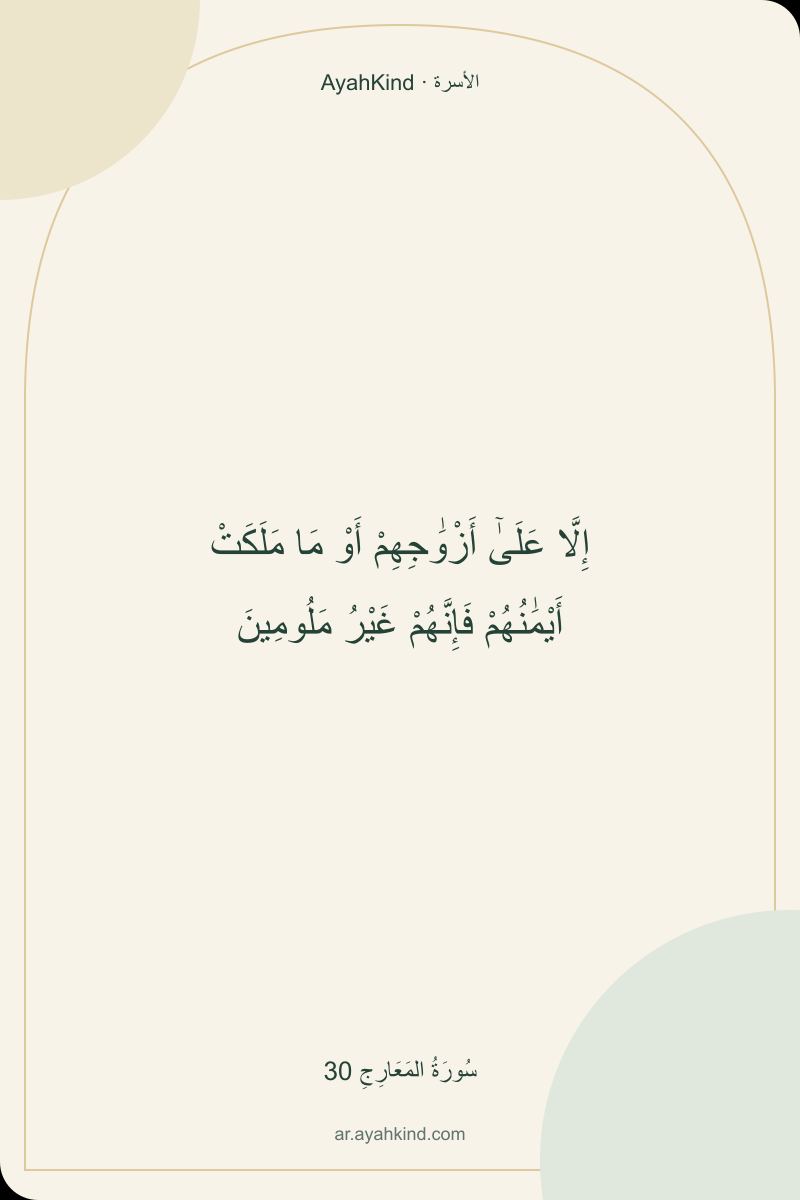 الأسرة · AyahKind
إِلَّا عَلَىٰٓ أَزْوَٰجِهِمْ أَوْ مَا مَلَكَتْ
أَيْمَٰنُهُمْ فَإِنَّهُمْ غَيْرُ مَلُومِينَ
سُورَةُ المَعَارِجِ 30
ar.ayahkind.com